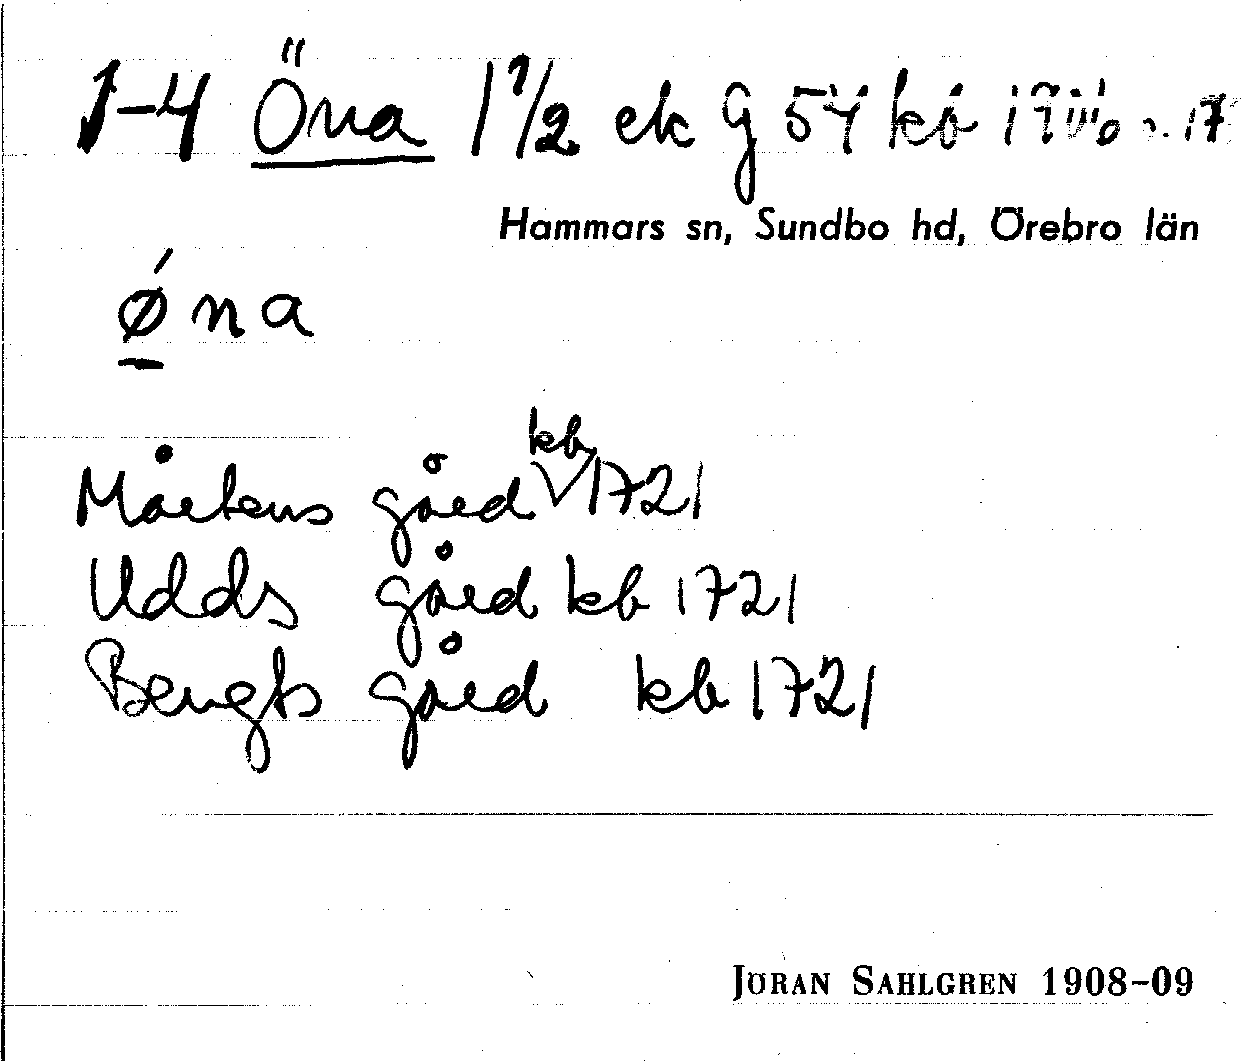 1-4 Öna 1 1/2 ek G 54 kb
Hammars sn, Sundbo hd, Örebro län
ǿna
Mårtens gård kb 1721
Udds gård kb 1721
Bengts gård kb 1721
JÖRAN SAHLGREN 1908-09